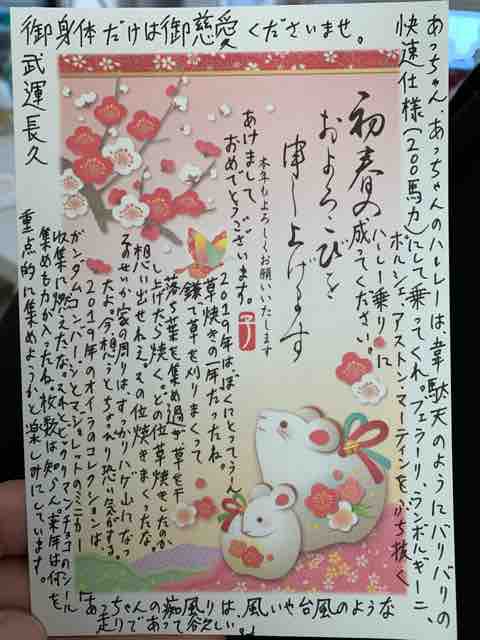 あっちゃん あっちゃんのハーレーは、韋駄天のようにバリバリの
快速仕様(200馬力)にして乗ってくれ。フェラーリ、ランボルギーニ、
ポルシェ、アストン・マーティンをぶち抜く
ハーレー乗りに
成ってください。
初春の
およろこびを
申し上げます
本年もよろしくお願いいたします
子
あけまして
おめでとうございます。
2019年はぼくにとってうん
草焼きの一年だったね。
鎌で草を刈りまくって
落ち葉を集め過ぎ、草を干
し上げたら焼く。どの位草焼きをしたのか
想い出せねえ。その位焼きまくったな。
そのせいか家の周りはすっかりハゲ山になっ
たよ。今想うとちょっぴり恐い気がする。
2019年のオイラのコレクションは、
ガンダムのナンバーレンジとマジョレットのミニカー
収集に燃えたな。スルとビックリマンチョコのシール
集めも力が入ったね。枚数は知らん。来年は何を
重点的に集めようかと楽しみにしています。
御身体だけは御慈愛くださいませ。
武運長久
「あっちゃんの痴風りは、風いや台風のような
走りであって欲しい。」